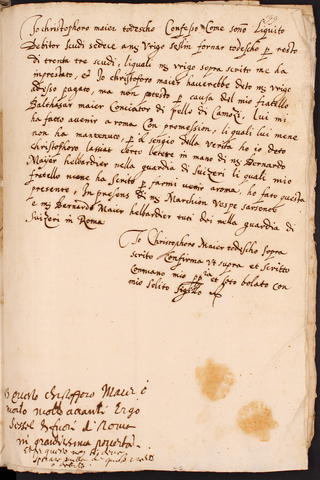 Io christophoro maier todescho Confesso Come sono liquito
Debitor scudi sedece a mº Vrigo sesim fornar todescho p resto
di trenta tre scudi, liquali mº vrigo sopra scrito me ha
inprestato, et Io christoforo maier hauerebbe deto mº vrigo
adesso pagato, ma non posseto p causa del mio fratello
Balthasar maier Conciator di pelli di Camozi, lui mi
ha fatto auenir a roma Con promession, li quali lui mene
non ha mantenuto, p il segno della verita ho io deto
christophoro lassat certe letere in mano di mº Bernardo
Mayer helbardier nella guardia di suizeri li quali mio
fratello mene ha scrito p farmi uenir a roma, ho fato questa
presente, In presens di mº Marchion Vespe sarsonet
e mº Bernardo Maier helbardier tuti doi nella guardia di
Suizeri in Roma
Io Christophoro Maier todescho sopra
scrito Confirma vt supra et scritto
Conmano mio ppia et soto bolato con
mio solito Sigillo
questo christofforo Maier è
morto molto auanti Ergo
Sessel di fuori di Roma
in grandissima pouerta.
Et per questo non si deue
sperare nulla di questo credito
o debito